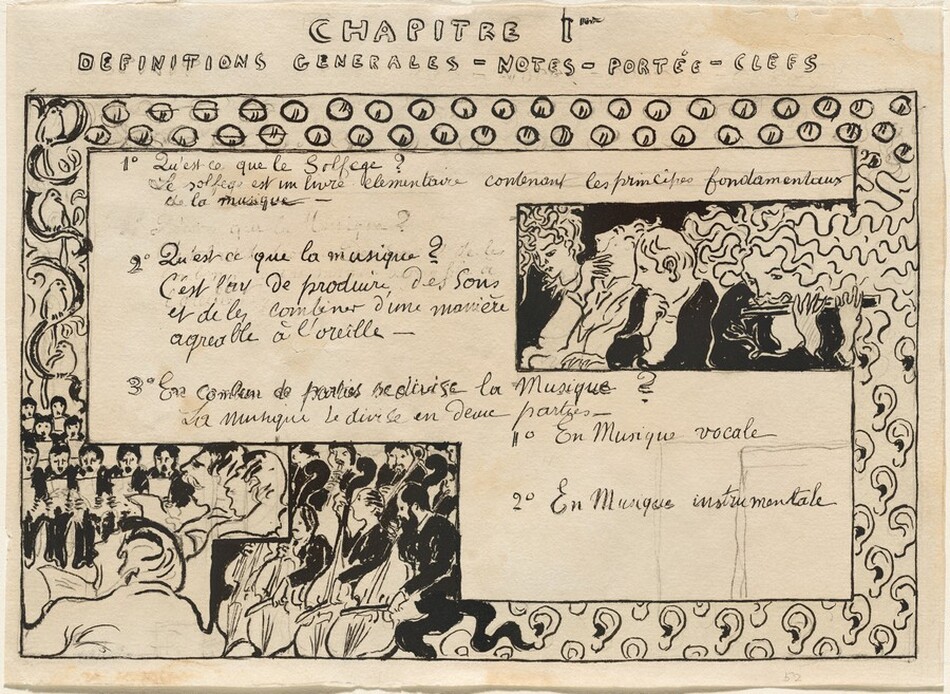 CHAPITRE I
DEFINITIONS GENERALES - NOTES - PORTÉE - CLEFS
1° Qu'est-ce que le Solfege ?
Le solfege est un livre elementaire contenant les principes fondamentaux
de la musique —
que la Musique ?
2° Qu'est ce que la musique ?
C'est l'art de produire des Sons
et de les combiner d'une manière
agreable à l'oreille —
3° En combien de parties se divise la Musique ?
La musique se divise en deux parties —
1° En Musique vocale
2° En Musique instrumentale
52